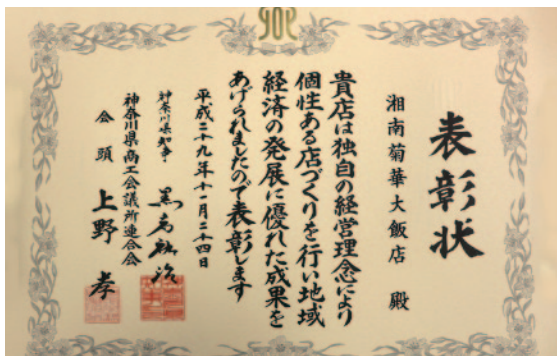 表彰状
湘南菊華大飯店 殿
貴店は独自の経営理念により
個性ある店づくりを行い地域
経済の発展に優れた成果を
あげられましたので表彰します
平成二十九年十一月二十四日
神奈川県知事 黒岩祐治
神奈川県商工会議所連合会
会頭 上野 孝